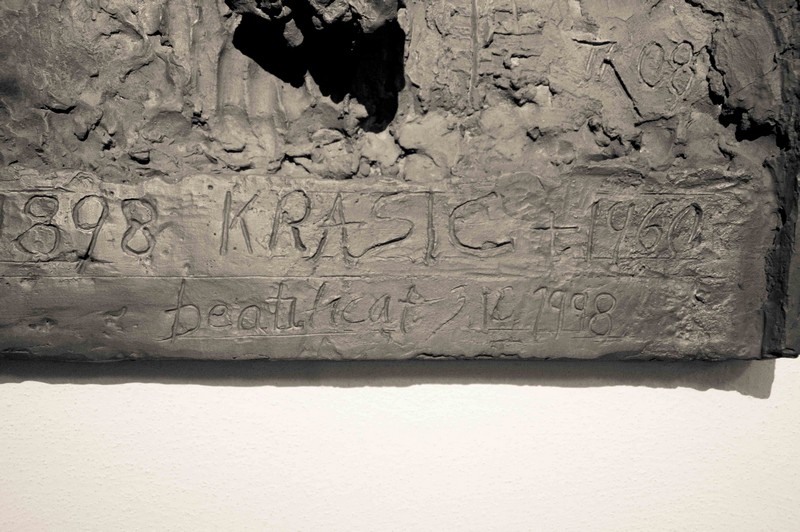 TK 08
1898 KRASIC +1960
beatificat 3 X 1998